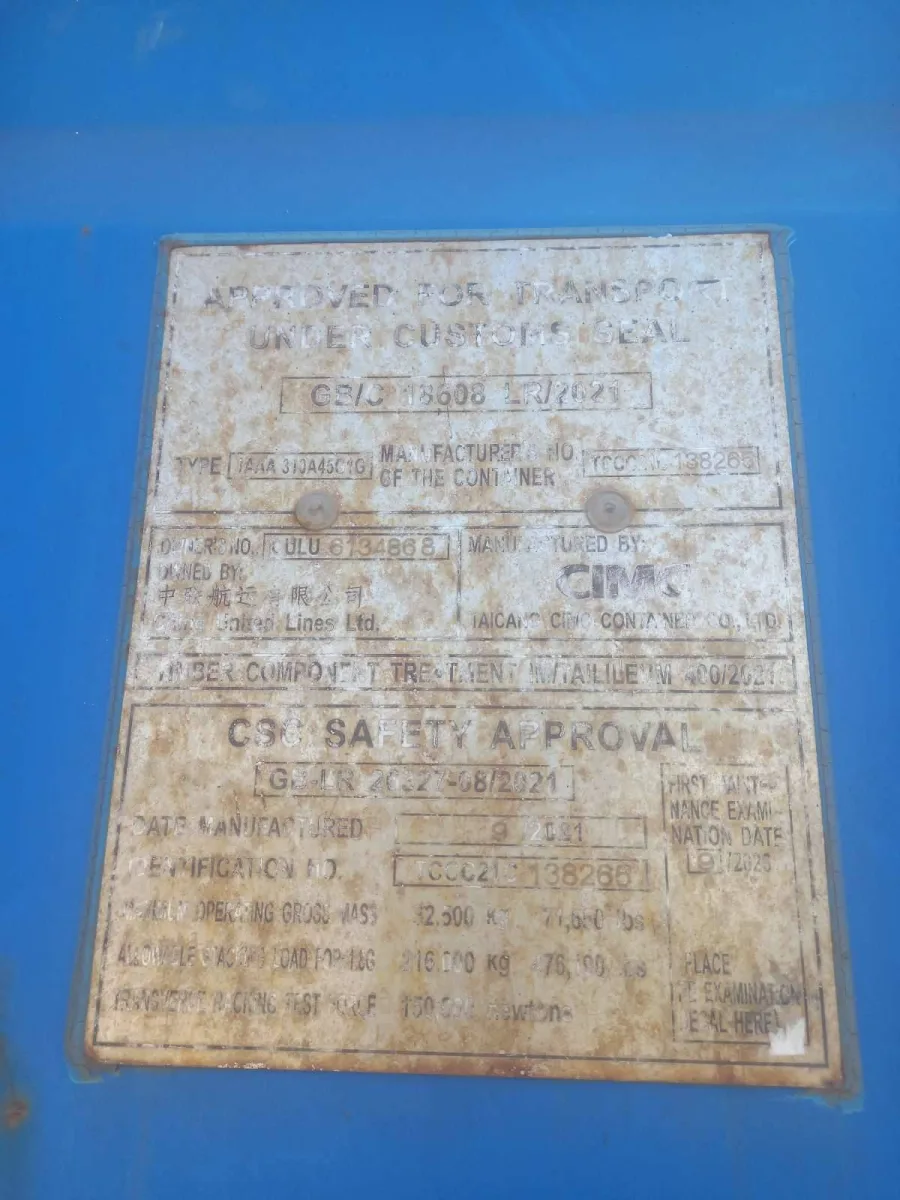 APPROVED FOR TRANSPORT
UNDER CUSTOMS SEAL
GB/C 18608 LR/2021
TYPE
MANUFACTURER'S NO.
OF THE CONTAINER
138266
OWNER'S NO. CULU 6134868
OWNED BY:
中联航运有限公司
United Lines Ltd.
MANUFACTURED BY:
CIMC
TAICANG CIMC CONTAINER CO., LTD.
TIMBER COMPONENT TREATMENT 400/2021
CSC SAFETY APPROVAL
GB-LR 08/2021
DATE MANUFACTURED 9 /2021
IDENTIFICATION NO. 138266
MAXIMUM OPERATING GROSS MASS 32,500 kg 71,650 lbs
ALLOWABLE STACKING LOAD FOR 1.8G kg lbs
TRANSVERSE RACKING TEST FORCE newtons
FIRST MAINTE-
NANCE EXAMI-
NATION DATE
9 /2026
PLACE
RE-EXAMINATION
DECAL HERE